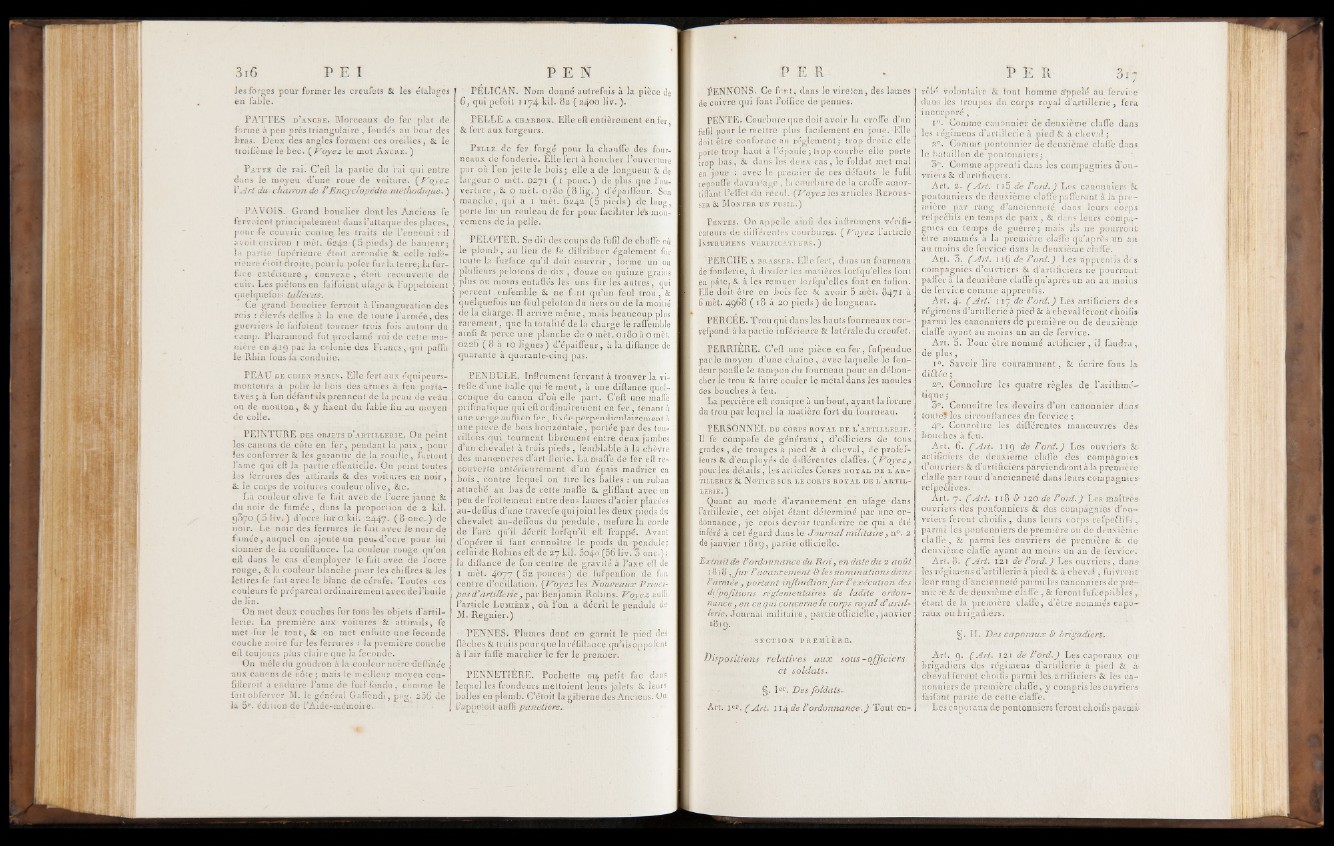 316 P E I
les forges pour former les creusets & les étalages
en sable.
PATTES D'ANCRE. Morceaux de fer plat de
forme à peu près triangulaire, soudés au bout des
bras. Deux des angles forment ces oreilles, & le
troisième le bec. (Voyez le mot ANCRE.)
PATTE de rai. C'est la partie du rai qui entre
dans le moyeu d'une roue de voiture. (Voyez
l'Art du charron de l'Encyclopédie méthodique.)
PAVOIS. Grand bouclier dont les Anciens se
servoient principalement dans l'attaque des places,
pour se couvrir contre les traits de l'ennemi : il
avoit environ 1 mèt. 6242 (5 pieds) de hauteur;
la partie supérieure étoit arrondie & celle infé-
rieure étoit droite, pour la poser sur la terre; la sur-
face extérieure, convexe, étoit recouverte de
cuir. Les piétons en faisoient usage & l'appeloient
quelquefois tallevas.
Ce grand bouclier servoit à l'inauguration des
rois : élevés dessus à la vue de toute l'armée, des
guerriers le faisoient tourner trois fois autour du
camp. Pharamond fut proclamé roi de cette ma-
nière en 419 par la colonie des Francs, qui passa
le Rhin sous sa conduite.
PEAU DE CHIEN MARIN. Elle sert aux équipeurs-
monteurs à polir le bois des armes à feu porta-
tives; à son défaut ils prennent de la peau de veau
ou de mouton, & y fixent du sable fin au moyen
de colle.
PEINTURE DES OBJETS D'ARTILLERIE. On peint
les canons de côte en fer, pendant la paix, pour
les conserver & les garantir de la rouille, surtout
l'ame qui est la partie essentielle. On peint toutes
les ferrures des attirails & des voitures en noir,
& le corps de voitures couleur olive, &c.
La couleur olive se fait avec de l'ocre jaune &
du noir de fumée, dans la proportion de 2 kil.
9370 (5 liv.) d'ocre sur 0 kil. 2447. (8 onc.) de
noir. Le noir des ferrures se fait avec le noir de
fumée, auquel on ajoute un peu d'ocre pour lui
donner de la consistance. La couleur rouge qu'on
est dans le cas d'employer se fait avec de l'ocre
rouge, & la couleur blanche pour les chiffres & les
lettres se fait avec le blanc de céruse. Toutes ces
couleurs se préparent ordinairement avec de l'huile
de lin.
On met deux couches sur tous les objets d'artil-
lerie. La première aux voitures & attirails, se
met sur le tout, & on met ensuite une seconde
couche noire sur les ferrures : la première couche
est toujours plus claire que la seconde.
On mêle du goudron à la couleur noire destinée
aux canons de côte; mais le meilleur moyen con-
sisteroit à enduire l'ame de suif fondu, comme le
fait observer M. le général Gassendi, pag. 256 de
la 5e. édition de l'Aide-mémoire.
P E N
PÉLICAN. Nom donné autrefois à la pièce de
6, qui pesoit 1174 kil. 82 (2400 liv.).
PELLE A CHARBON. Elle est entièrement en fer,
& sert aux forgeurs.
PELLE de fer forgé pour la chauffe des four-
neaux de fonderie. Elle sert à boucher l'ouverture
par où l'on jette le bois; elle a de longueur & de
largeur 0 mèt. 0271 (1 pouc.) de plus que l'ou-
verture, & 0 mèt. 0180 (8 lig.) d'épaisseur. Son
manche, qui a 1 mèt. 6242 (5 pieds) de long,
porte sur un rouleau de fer pour faciliter les mou-
vemens de la pelle.
PELOTER. Se dit des coups de fusil de chasse où
le plomb, au lieu de se distribuer également sur
toute la surface qu'il doit couvrir, forme un ou
plusieurs pelotons de dix, douze ou quinze grains
plus ou moins entassés les uns sur les autres, qui
percent ensemble & ne font qu'un seul trou, &
quelquefois un seul peloton du tiers ou de la moitié
de la charge. Il arrive même, mais beaucoup plus
rarement, que la totalité de la charge se rassemble
ainsi & perce une planche de 0 mèt. 0180 à 0 mèt.
0226 (8 à 10 lignes) d'épaisseur, à la distance de
quarante à quarante-cinq pas.
PENDULE. Instrument servant à trouver la vi-
tesse d'une balle qui se meut, à une distance quel-
conque du canon d'où elle part. C'est une masse
prismatique qui est ordinairement en fer, tenant à
une verge aussi en fer, fixée perpendiculairement à
une pièce de bois horizontale, portée par des tou-
rillons qui tournent librement entre deux jambes
d'un chevalet à trois pieds, semblable à la chèvre
des manœuvres d'artillerie. La masse de fer est re-
couverte antérieurement d'un épais madrier en
bois, contre lequel on tire les balles : un ruban
attaché au bas de cette masse & glissant avec un
peu de frottement entre deux lames d'acier placées
au-dessus d'une traverse qui joint les deux pieds du
chevalet au-dessous du pendule, mesure la corde
de l'arc qu'il décrit lorsqu'il est frappé. Avant
d'opérer il faut connoître le poids du pendule;
celui de Robins est de 27 kil. 5040 (56 liv. 3 onc.):
la distance de son centre de gravité à l'axe est de
1 mèt. 4077 (52 pouces) de suspension de son
centre d'oscillation. (Voyez les Nouveaux Princi-
pes d'artillerie, par Benjamin Robins. Voyez aussi
l'article LUMIÈRE, où l'on a décrit le pendule de
M. Regnier.)
PENNES. Plumes dont on garnit le pied des
flèches & traits pour que la résistance qu'ils opposent
à l'air fasse marcher le fer le premier.
PENNETIÈRE. Pochette ou petit sac dans
lequel les frondeurs mettoient leurs jalets & leurs
balles en plomb. C'étoit la giberne des Anciens. On
l'appeloit aussi panetière.
P E R
PENNONS. Ce sont, dans le vireton, des lames
de cuivre qui font l'office de pennes.
PENTE. Courbure que doit avoir la crosse d'un
fusil pour le mettre plus facilement en joue. Elle
doit être conforme au réglement; trop droite elle
porte trop haut à l'épaule; trop courbe elle porte
trop bas, & dans les deux cas, le soldat met mal
en joue : avec le premier de ces défauts le fusil
repousse davantage, la courbure de la crosse amor-
tissant l'effet du recul. (Voyez les articles REPOUS-
SER & MONTER UN FUSIL.)
PENTES. On appelle ainsi des instrumens vérifi-
cateurs de différentes courbures. (Voyez l'article
INSTRUMENS VÉRIFICATEURS.)
PERCHE A BRASSER. Elle sert, dans un fourneau
de fonderie, à diviser les matières lorsqu'elles sont
en pâte, & à les remuer lorsqu'elles sont en fusion.
Elle doit être en bois sec & avoir 5 mèt. 8471 à
6 mèt. 4968 (18 à 20 pieds) de longueur.
PERCÉE. Trou qui dans les hauts fourneaux cor-
respond à la partie inférieure & latérale du creuset.
PERRIÈRE. C'est une pièce en fer, suspendue
par le moyen d'une chaîne, avec laquelle le fon-
deur pousse le tampon du fourneau pour en débou-
cher le trou & faire couler le métal dans les moules
des bouches à feu.
La perrière est conique à un bout, ayant la forme
du trou par lequel la matière sort du fourneau.
PERSONNEL DU CORPS ROYAL DE L'ARTILLERIE.
Il se compose de généraux, d'officiers de tous
grades, de troupes à pied & à cheval, de profes-
seurs & d'employés de différentes classes. (Voyez,
pour les détails, les articles CORPS ROYAL DE L'AR-
TILLERIE & NOTICE SUR LE CORPS ROYAL DE L'ARTIL-
LERIE.)
Quant au mode d'avancement en usage dans
l'artillerie, cet objet étant déterminé par une or-
donnance, je crois devoir transcrire ce qui a été
inséré à cet égard dans le Journal militaire, n°. 2
de janvier 1819, partie officielle.
Extrait de l'ordonnance du Roi, en date du 2 août
1818, sur l'avancement & les nominations dans
l'armée, portant instruction sur l'exécution des
dispositions réglementaires de ladite ordon-
nance, en ce qui concerne le corps royal d'artil-
lerie. Journal militaire, partie officielle, janvier
1819.
SECTION PREMIÈRE.
Dispositions relatives aux sous-officiers
et soldats.
§. Ier. Des soldats.
Art. 1er. (Art. 114 de l'ordonnance.) Tout en-
P E R 317
rôlé volontaire & tout homme appelé au service
dans les troupes du corps royal d'artillerie, sera
incorporé,
1°. Comme canonnier de deuxième classe dans
les régimens d'artillerie à pied & à cheval;
2°. Comme pontonnier de deuxième classe dans
le bataillon de pontonniers;
3°. Comme apprenti dans les compagnies d'ou-
vriers & d'artificiers.
Art. 2. (Art. 115 de l'ord.) Les canonniers &
pontonniers de deuxième classe passeront à la pre-
mière par rang d'ancienneté dans leurs corps
respectifs en temps de paix, & dans leurs compa-
gnies en temps de guerre; mais ils ne pourront
être nommés à la première classe qu'après un an
au moins de service dans la deuxième classe.
Art. 3. (Art. 116 de l'ord.) Les apprentis des
compagnies d'ouvriers & d'artificiers ne pourront
passer à la deuxième classe qu'après un an au moins
de service comme apprentis.
Art. 4. (Art. 117 de l'ord.) Les artificiers des
régimens d'artillerie à pied & à cheval seront choisis
parmi les canonniers de première ou de deuxième
classe ayant au moins un an de service.
Art. 5. Pour être nommé artificier, il faudra,
de plus,
1°. Savoir lire couramment, & écrire sous la
dictée;
2°. Connoître les quatre règles de l'arithmé-
tique;
3°. Connoître les devoirs d'un canonnier dans
toutes les circonstances du service;
4°. Connoître les différentes manœuvres des
bouches à feu.
Art. 6. (Art. 119 de l'ord.) Les ouvriers &
artificiers de deuxième classe des compagnies
d'ouvriers & d'artificiers parviendront à la première
classe par tour d'ancienneté dans leurs compagnies
respectives.
Art. 7. (Art. 118 & 120 de l'ord.) Les maîtres
ouvriers des pontonniers & des compagnies d'ou-
vriers seront choisis, dans leurs corps respectifs,
parmi les pontonniers de première ou de deuxième
classe, & parmi les ouvriers de première & de
deuxième classe ayant au moins un an de service.
Art. 8. (Art. 121 de l'ord.) Les ouvriers, dans
les régimens d'artillerie à pied & à cheval, suivront
leur rang d'ancienneté parmi les canonniers de pre-
mière & de deuxième classe, & seront susceptibles,
étant de la première classe, d'être nommés capo-
raux ou brigadiers.
§. II. Des caporaux & brigadiers.
Art. 9. (Art. 121 de l'ord.) Les caporaux ou
brigadiers des régimens d'artillerie à pied & à
cheval seront choisis parmi les artificiers & les ca-
nonniers de première classe, y compris les ouvriers
faisant partie de cette classe.
Les caporaux de pontonniers seront choisis parmi